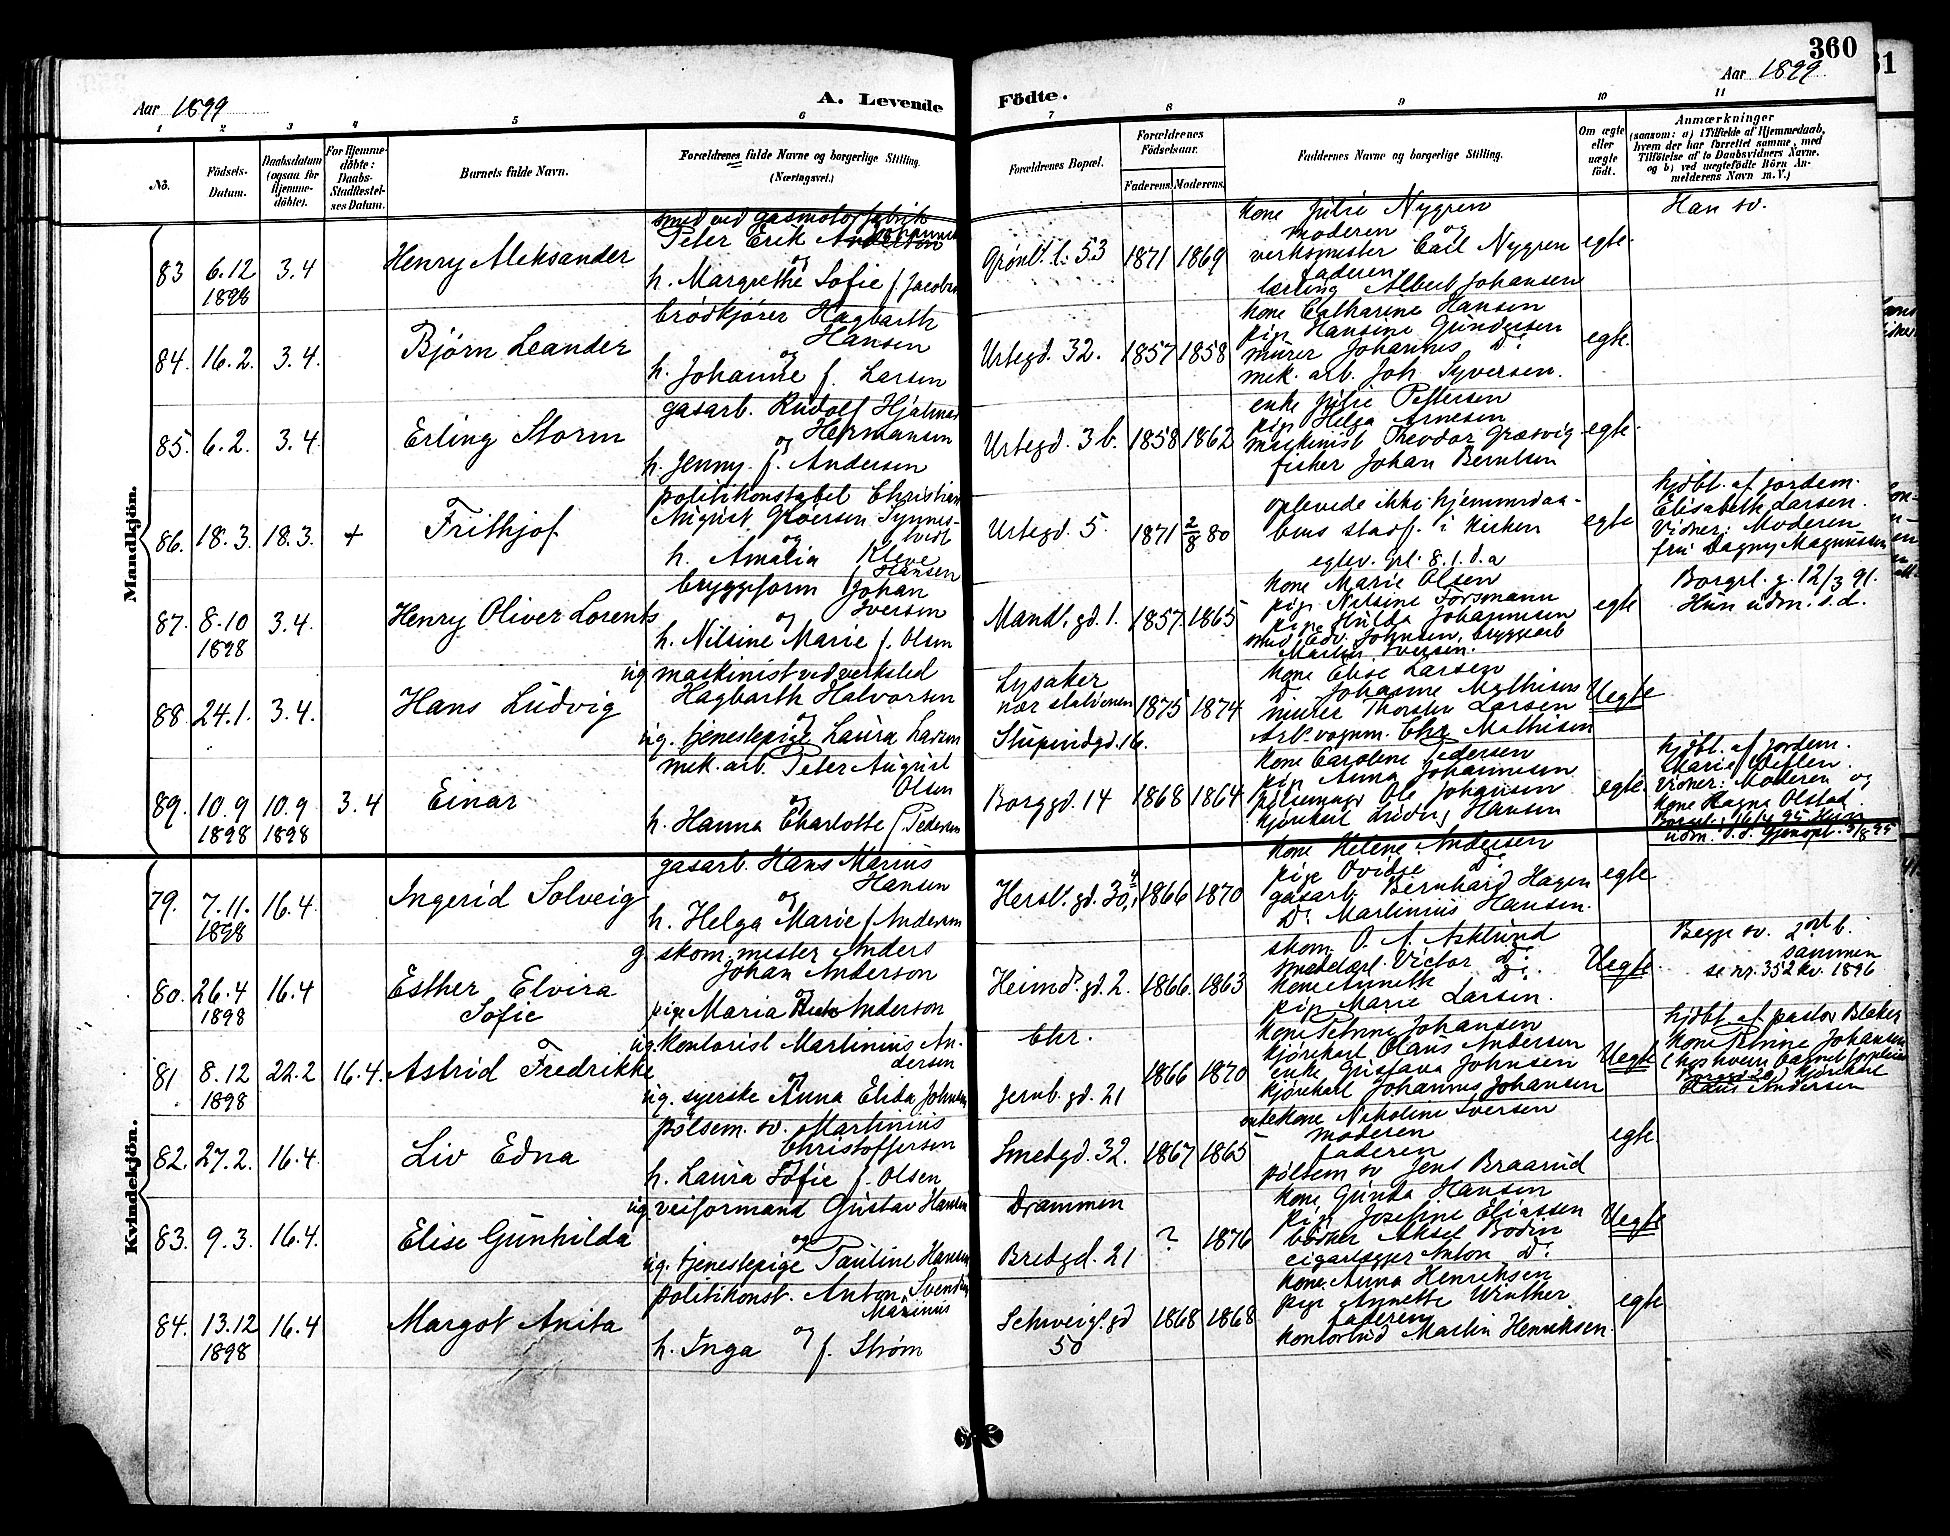 360
Aar 1899
A. Levende
Födte.
Aar 1899
1 2 3 4 5 6 7 8 9 10 11
No.
Födsels-
Datum.
Daabsdatum
(ogsaa for
Hjemme-
döbte).
For Hjemme-
döbte:
Daabs-
Stadfæstel-
ses Datum.
Barnets fulde Navn.
Forældrenes fulde Navne og borgerlige Stilling.
(Næringsvei.)
Forældrenes Bopæl.
Forældrenes
Födselsaar.
Faderens. Moderens.
Faddernes Navne og borgerlige Stilling.
Om ægte
eller
uægte
födt.
Anmærkninger
(saasom: a) i Tilfælde af Hjemmedaab,
hvem der har forrettet samme, med
Tilföielse af to Daabsvidners Navne.
og b) ved uægtefödte Börn An-
melderens Navn m. V.)
Mandkjön.
83 6.12 1898 3.4 Henry Aleksander
smed ved gasmotorfabrik
Peter Erik Anderson
og
h. Margrethe Sofie f. Jacobsen
Grønl. l. 53 1871 1869
kone Julie Nygren
moderen og
verksmester Carl Nygren
faderen
lærling Albert Johansen
egte.
Han sv.
84. 16.2. 3.4. Bjørn Leander
brødkjører Hagbarth
Hansen
og
h. Johanne f. Larsen
Urtegd. 32. 1857 1858
kone Catharine Hansen
pige Hansine Gundersen
murer Johannes Do
mek. arb. Joh. Syversen.
egte.
85. 6.2. 3.4. Erling Storm
gasarb. Rudolf Hjalmar
Hermansen
og
h. Jenny f. Andersen
Urtegd. 3 b. 1858 1862
enke Julie Pettersen
pige Helga Arnesen
maskinist Theodor Græsvig
fisker Johan Berntsen
egte.
86. 18.3. 18.3. + Frithjof
politikonstabel Christian
August Gløersen Synnes-
tvedt
og
h. Amalia Kleve
Hansen
Urtegd. 5. 1871 2/8 80
oplevede ikke hjemmedaa-
bens stadf. i kirken
egtev. pl. 8.1. d.a
egte
hjdbt. af jordem.
Elisabeth Larsen.
Vidner: Moderen
fru Dagny Magnussen
87. 8.10 1898 3.4. Henry Oliver Lorents
bryggeform Johan
Iversen
og
h. Nilsine Marie f. Olsen
Mandl. gd. 1. 1857 1865
kone Marie Olsen
pige Nilsine Forsmann
pige Hulda Johannesen
smed Edv. Johnsen, bryggearb
Martin Iversen.
egte
Borgrl. g. 12/3 91.
Hun udm. s. d.
88. 24.1. 3.4. Hans Ludvig
ug. maskinist ved verksted
Hagbarth Halvorsen
og
ug. tjenestepige Laura Larsen
Lysaker
nær stationen
Stupindgd. 16. 1875 1874
kone Elise Larsen
D. Johanne Mathisen
murer Thorster Larsen
Ark.vognm. Chr Mathisen
Uegte
89. 10.9 1898 10.9 1898 3.4 Einar
mek. arb. Peter August
Olsen
og
h. Hanna Charlotte f. Pedersen
Borggd. 14 1868 1864
kone Caroline Pedersen
pige Anna Johannesen
pølsemager Ole Johansen
kjørekarl Ludvig Hansen
egte.
hjdbt. af jordem.
Marie Metlen.
Vidner: Moderen og
kone Magna Olstad.
Kvindekjön.
79. 7.11. 1898 16.4. Ingerid Solveig
gasarb. Hans Marius
Hansen
og
h. Helga Marie f. Andersen
Hersl. gd. 30, 1866 1870
kone Helene Andersen
pige Ovidie Do
gasarb. Bernhard Hagen
Do Martinius Hansen.
egte
80. 26.4 1898 16.4 Esther Elvira
Sofie
g. skom. mester Anders
Johan Anderson
og
pige Maria Anderson
Heimd. gd. 2. 1866. 1863
skom. O. A. Asklund
smedelærl. Victor Do
kone Anneth Do
pige Marie Larsen.
Uegte.
Begge sv. 2det b.
sammen
se nr. 352 kv. 1896
81 8.12 1898 22.2 16.4. Astrid Fredrikke
ug. kontorist Martinius An-
dersen
og
ug. syerske Anna Elida Johnsen
Chr.
Jernb. gd. 21 1866 1870
kone Petrine Johansen
kjørekarl Olaus Andersen
enke Gustava Johnsen
kjørekarl Johannes Johansen
Uegte
hjdbt. af pastor Blaker
kone Petrine Johansen
(hos hvem barnet forpleies
kjørekarl
Olaus Andersen
82. 27.2. 16.4. Liv Edna
pølsem. sv. Martinius
Christoffersen
h. Laura Sofie f. Olsen
Smedgd. 32. 1867 1865
enkekone Nikoline Iversen
moderen
faderen
pølsem sv Jens Braarud
egte.
83. 9.3. 16.4. Elise Gunhilda
ug. veiformand Gustav Hansen
og
ug. tjenestepige Pauline Hansen
Drammen
Bredgd. 21 ? 1876
kone Gunda Hansen
pige Josefine Eliassen
bødker Aksel Bodin
cigarlægger Anton Do
Uegte
84. 13.12 1898 16.4 Margot Anita
politikonst. Anton Svendsen
Marinius
og
h. Inga f. Strøm
Schweig. gd
50 1868 1868
kone Anna Henriksen
pige Annette Winther
faderen
kontorbud Martin Henriksen.
egte